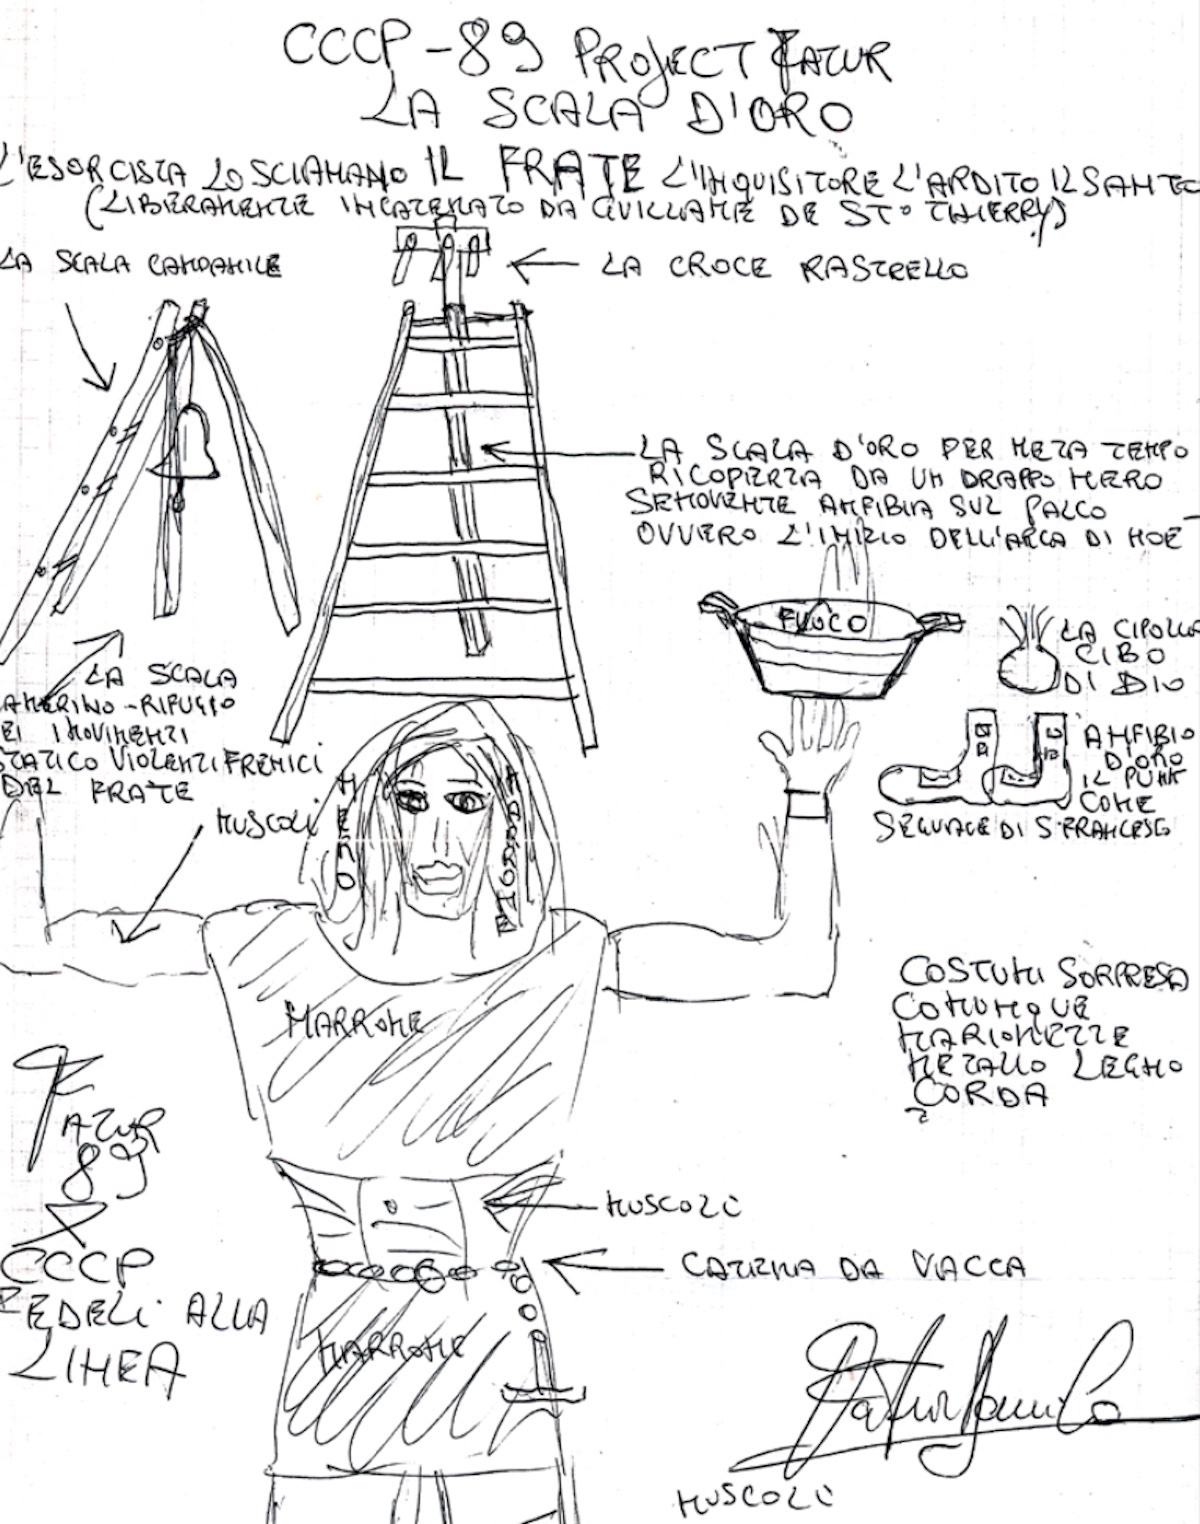 CCCP-89 PROJECT FATUR
LA SCALA D'ORO
L'ESORCISTA LO SCIAMANO IL FRATE L'INQUISITORE L'ARDITO IL SANTO
(LIBERAMENTE INCATENATO DA GUILLAME DE ST° THIERRY)
LA SCALA CAMPANILE
LA CROCE RASTRELLO
LA SCALA D'ORO PER META TEMPO
RICOPERTA DA UN DRAPPO NERO
SEMOVENTE ANFIBIA SUL PALCO
OVVERO L'INIZIO DELL'ARCA DI NOE
FUOCO
LA CIPOLLA
CIBO
DI DIO
LA SCALA
AMERINO-RIFUGIO
EI MOVIMENTI
STATICO VIOLENTI FRENICI
DEL FRATE
ANFIBIO
D'ORO
IL PUNK
COME
SEGUACE DI S. FRANCESCO
MUSCOLI
NERO
MARRONE
COSTUMI SORPRESA
COMUNQUE
MARIONETTE
METALLO LEGNO
CORDA
FATUR
89
X
CCCP
FEDELI ALLA
LINEA
MUSCOLI
CATENA DA VACCA
MARRONE
Fatur
MUSCOLI